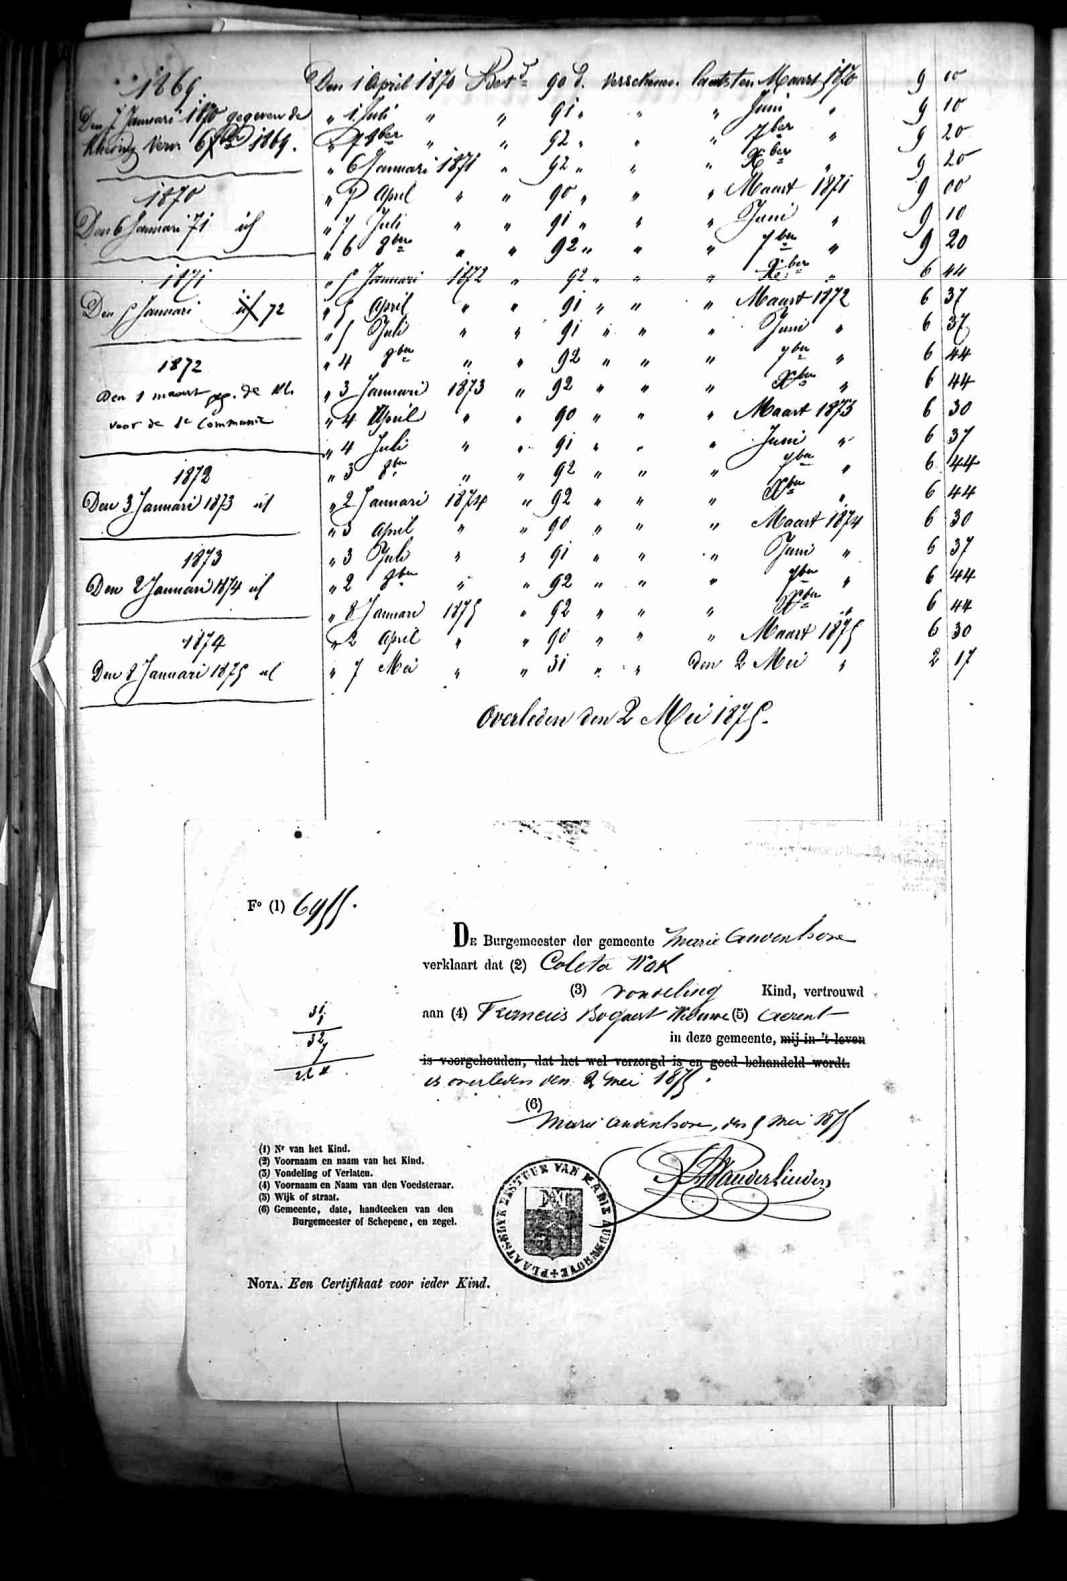 1869.
Den 7 Januari 1870 gegeven de
kleeding Voor 1869.
1870
Den 6 Januari 71 id
1871
Den 5 Januari 72
1872
Den 1 maart geg. de kl.
voor de 1e Communie
1872
Den 3 Januari 1873 id
1873
Den 2 Januari 1874 id
1874
Den 8 Januari 1875 id
Den 1 April 1870 Bet.d 90 d. verschenen laatsten Maart 1870 9 00
" 1 Juli " " 91 " " " Juni " 9 10
" 7 8ber " " 92 " " " 7ber " 9 20
" 6 Januari 1871 " 92 " " " Xber " 9 20
" 5 April " " 90 " " " Maart 1871 9 00
" 7 Juli " " 91 " " " Juni " 9 10
" 6 8ber " " 92 " " " 7ber " 9 20
" 5 Januari 1872 " 92 " " " Xber " 6 44
" 5 April " " 91 " " " Maart 1872 6 37
" 5 Juli " " 91 " " " Juni " 6 37
" 4 8ber " " 92 " " " 7ber " 6 44
" 3 Januari 1873 " 92 " " " Xber " 6 44
" 4 April " " 90 " " " Maart 1873 6 30
" 4 Juli " " 91 " " " Juni " 6 37
" 3 8ber " " 92 " " " 7ber " 6 44
" 2 Januari 1874 " 92 " " " Xber " 6 44
" 3 April " " 90 " " " Maart 1874 6 30
" 3 Juli " " 91 " " " Juni " 6 37
" 2 8ber " " 92 " " " 7ber " 6 44
" 8 Januari 1875 " 92 " " " Xber " 6 44
" 2 April " " 90 " " " Maart 1875 6 30
" 7 Mei " " 31 " " den 2 Mei " 2 17
Overleden den 2 Mei 1875.
Fo (1) 6955.
De Burgemeester der gemeente Marie Audenhove
verklaart dat (2) Coleta Wak
(3) vondeling Kind, vertrouwd
aan (4) Francies Bogaert Weduwe (5)
in deze gemeente, mij in 't leven
is voorgehouden, dat het wel verzorgd is en goed behandeld wordt.
is overleden den 2 mei 1875.
(6)
Marie Audenhove, den 5 mei 1875
31
1
32
7
(1) Nr van het Kind.
(2) Voornaam en naam van het Kind.
(3) Vondeling of Verlaten.
(4) Voornaam en Naam van den Voedsteraar.
(5) Wijk of straat.
(6) Gemeente, date, handteeken van den
Burgemeester of Schepene, en zegel.
PLAATSELYK BESTUUR VAN MARIE AUDENHOVE
Nota. Een Certifikaat voor ieder Kind.